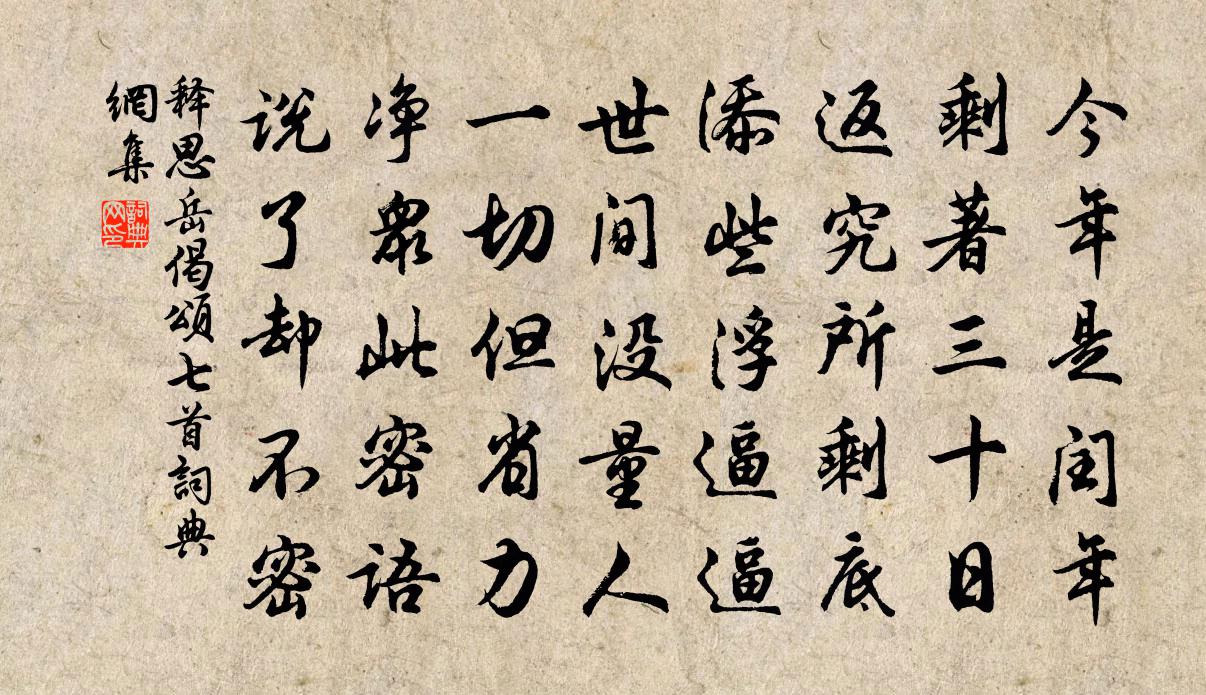 今年是闰年
剩著三十日
返究所剩底
添些浮逼逼
世间没量人
一切但省力
净众此密语
说了却不密
释思岳偈颂七首詞典
網集
詞典
网印